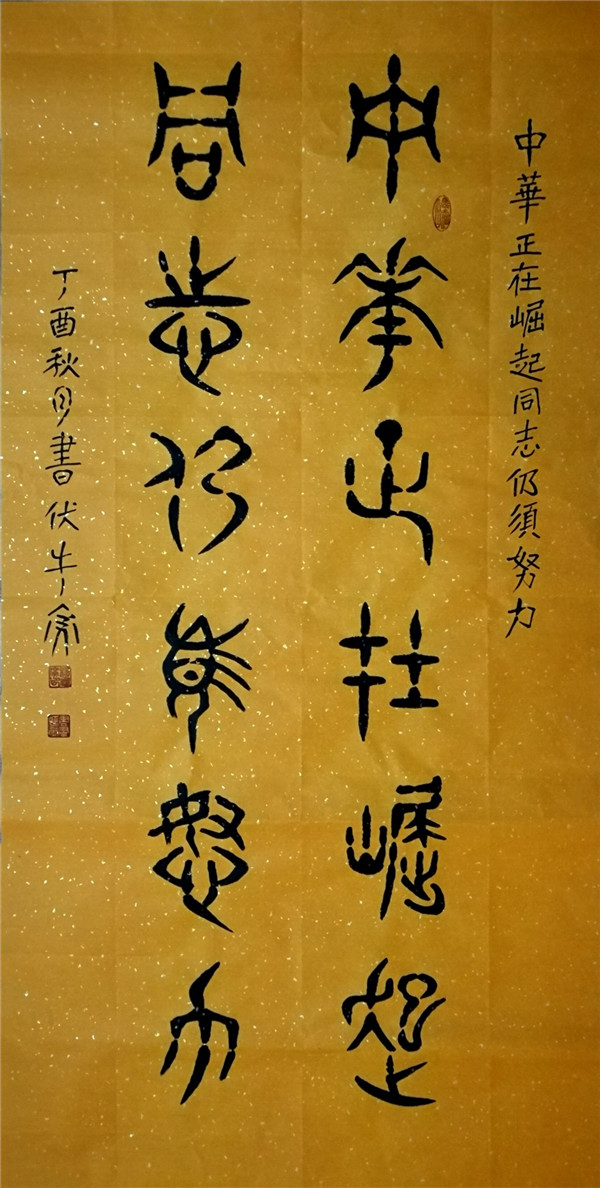 中華正在崛起同志仍須努力
中華正在崛起
同志仍須努力
丁酉秋月書伏牛